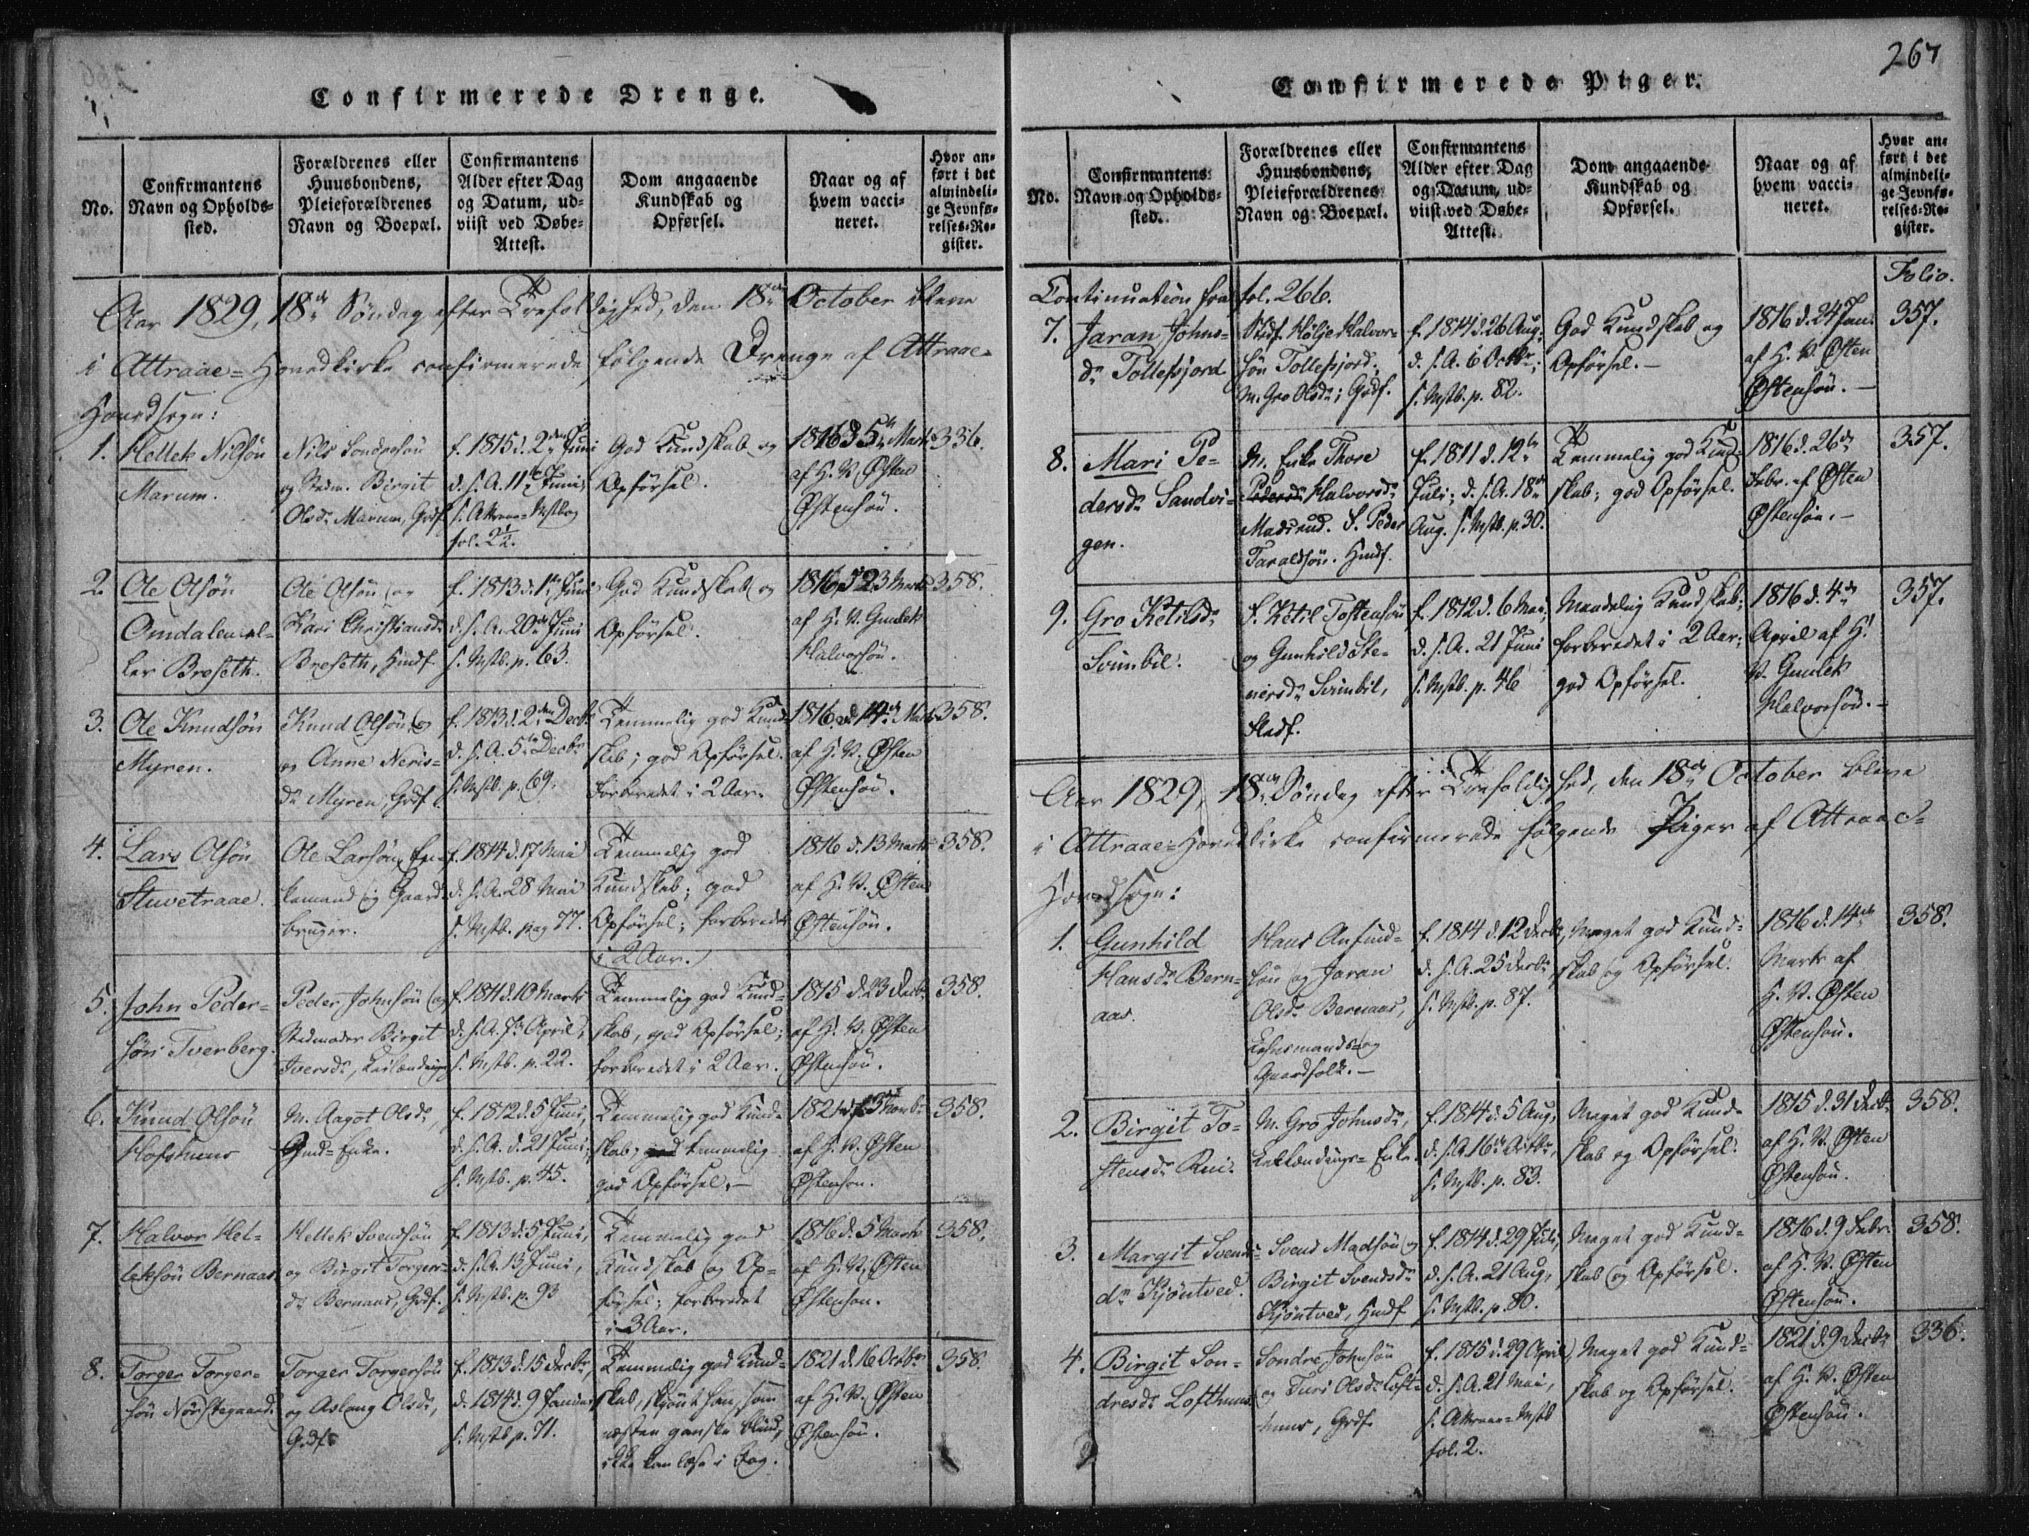 Confirmerede Drenge.
No.
Confirmantens
Navn og Opholds-
sted.
Forældrenes eller
Huusbondens,
Pleieforældrenes
Navn og Boepæl.
Confirmantens
Alder efter Dag
og Datum, ud-
viist ved Døbe-
Attest.
Dom angaaende
Kundskab og
Opførsel.
Naar og af
hvem vacci-
neret.
Hvor an-
ført i det
almindeli-
ge Jevnfø-
relses-Re-
gister.
Aar 1829, 18de Søndag efter Trefoldighed, den 18de October bleve
i Attraae-Hovedkirke confirmerede følgende Drenge af Attraae-
Hovedsogn:
1. Hellek Nilsøn
Marum.
Nils Sondresøn
og Stedm. Birgit
Olsdr Marum, Grdf.
f. 1815 d. 2den Juni
d. s. A. 11te Juni
s. Attraae-Mstb.
fol. 2½.
God Kundskab og
Opførsel.
1816 d. 5te Marts
af H. V. Østen
Østensøn.
336.
2. Ole Olsøn
Omdalen el-
ler Broseth.
Ole Olsøn og
Kari Christiansdr
Broseth, Husf.
f. 1813 d. 1ste Juni
d. s. A. 20de Juni
s. Mstb. p. 63.
God Kundskab og
Opførsel.
1816 d. 23 Marts
af H. V. Gunlek
Halvorsøn.
358.
3. Ole Knudsøn
Myren.
Knud Olsøn
og Anne Neris-
dr Myren, Grdf.
f. 1813 d. 2den Decbr
d. s. A. 5te Decbr
s. Mstb. p. 69.
Temmelig god Kund-
skab; god Opførsel.
forberedet i 2 Aar.
1816 d. 14de Marts
af H. V. Østen
Østensøn.
358.
4. Lars Olsøn
Stuvetraae.
Ole Larsøn, En-
kemand og Gaard-
bruger.
f. 1814 d. 17 Mai
d. s. A. 28 Mai
s. Mstb. pag 77.
Temmelig god
Kundskab; god
Opførsel; forberedet
i 2 Aar.
1816 d. 13 Marts
af H. V. Østen
Østensøn.
358.
5. John Peder-
søn Tverberg.
Peder Johnsøn og
Stedmoder Birgit
Iversdr,
f. 1811 d. 10 Marts
d. s. A. 7de April,
s. Mstb. p. 22.
Temmelig god Kund-
skab, god Opførsel;
forberedet i 2 Aar.
1815 d. 23 Decbr
af H. V. Østen
Østensøn.
358.
6. Knud Olsøn
Hofshuus
M. Aagot Olsdr
Enke.
f. 1812 d. 5 Juni,
d. s. A. d. 21 Juni,
s. Mstb. p. 45.
Temmelig god Kund-
skab, temmelig
god Opførsel.-
1821 d. 3 Novbr
af H. V. Østen
Østenson.
358.
7. Halvor Hel-
leksøn Bernaas
Hellek Svendsøn
og Birgit Torgers-
dr Bernaas, Grdf.
f. 1813 d. 5 Juni,
d. s. A. 13 Juni,
s. Mstb. p. 93
Temmelig god
Kundskab og Op-
førsel; forberedet
i 3 Aar.
1816 d. 5 Marts
af H. V. Østen
Østenson.
358.
8. Torger Torger-
søn Norskegaard.
Torger Torgersøn
og Aslaug Olsdr,
Grdf.
f. 1813 d. 15 Decbr,
d. 1814 d. 9 Januar
s. Mstb p. 71.
Temmelig god Kund-
skab, skjønt han, som
næsten ganske blind,
ikke kan læse i Bog.
1821 d. 16 Octbr
af H. V. Østen
Østensøn.
358.
267
Confirmerede Piger.
No.
Confirmantens
Navn og Opholds-
sted.
Forældrenes eller
Huusbondens,
Pleieforældrenes
Navn og Boepæl.
Confirmantens
Alder efter Dag
og Datum, ud-
viist ved Døbe-
Attest.
Dom angaaende
Kundskab og
Opførsel.
Naar og af
hvem vacci-
neret.
Hvor an-
ført i det
almindeli-
ge Jevnfø-
relses-Re-
gister.
Folio.
Continuation fra fol. 266.
7. Jaran Johns-
dr Tollefsjord
Stedf. Kolje Halvor-
søn Tollefsjord.
M. Gro Olsdr; Grdf.
f. 1814 d. 26 Aug.
d. s. A. 6 Octbr;
s. Mstb. p. 82.
God Kundskab og
Opførsel.-
1816 d. 24 Jan.
af H. V. Østen
Østensøn.-
357.
8. Mari Pe-
dersdr Sandvi-
gen.
M. Enke Thore
Halvorsdr
Madsrud. F. Peder
Taraldsøn. Husf.
f. 1811 d. 12te
Juli; d. s. A. 18de
Aug. s. Mstb. p. 30.
Temmelig god Kund-
skab; god Opførsel.
1816 d. 26de
Febr. af Østen
Østensøn.-
357.
9. Gro Ketilsdr
Svinbil.
F. Ketil Tostensøn
og Gunhild Ste-
nersdr Svinbil,
Stedf.
f. 1812 d. 6 Mai,
d. s. A. 21 Juni
s. Mstb. p. 46
Maadelig Kundskab;
forberedet i 2 Aar;
god Opførsel.
1816 d. 4de
April af H.
V. Gunlek
Halvorsøn.-
357.
Aar 1829, 18de Søndag efter Trefoldighed, den 18de October bleve
i Attraae-Hovedkirke confirmerede følgende Piger af Attraae-
Hovedsogn:
1. Gunhild
Hansdr Bern-
aas.
Hans Anfind-
søn og Jaran
Olsdr Bernaas,
Lehnsmands- og
Gaardfolk.-
f. 1814 d. 12 Decbr,
d. s. A. 25 Decbr
s. Mstb. p. 87.
Meget god Kund-
skab og Opførsel.
1816 d. 14de
Marts af
H. V. Østen
Østensøn.
358.
2. Birgit To-
stensdr Rui.
M. Gro Johnsdr,
Enke.
f. 1814 d. 5 Aug,
d. s. A. 16de Octbr,
s. Mstb. p. 83.
Meget god Kund-
skab og Opførsel.
1815 d. 31 Decbr
af H. V. Østen
Østensøn.
358.
3. Margit Svends-
dr Kjøntved.
Svend Madsøn og
Birgit Svendsdr
Kjøntved, Husf
f. 1814 d. 29 Juli,
d. s. A. 21 Aug,
s. Mstb. p. 80.
Meget god Kund-
skab og Opførsel.
1816 d. 9 Febr.
af H. V. Østen
Østensøn.
358.
4. Birgit Son-
dresdr Lofthuus
Sondre Johnsøn
og Turi Olsdr Loft-
huus, Grdf.
f. 1815 d. 29 April
d. s. A. 21 Mai,
s. Attraae-Mstb
fol. 2.
Meget god Kund-
skab og Opførsel.
1821 d. 9 Decbr
af H. V. Østen
Østensøn.
336.